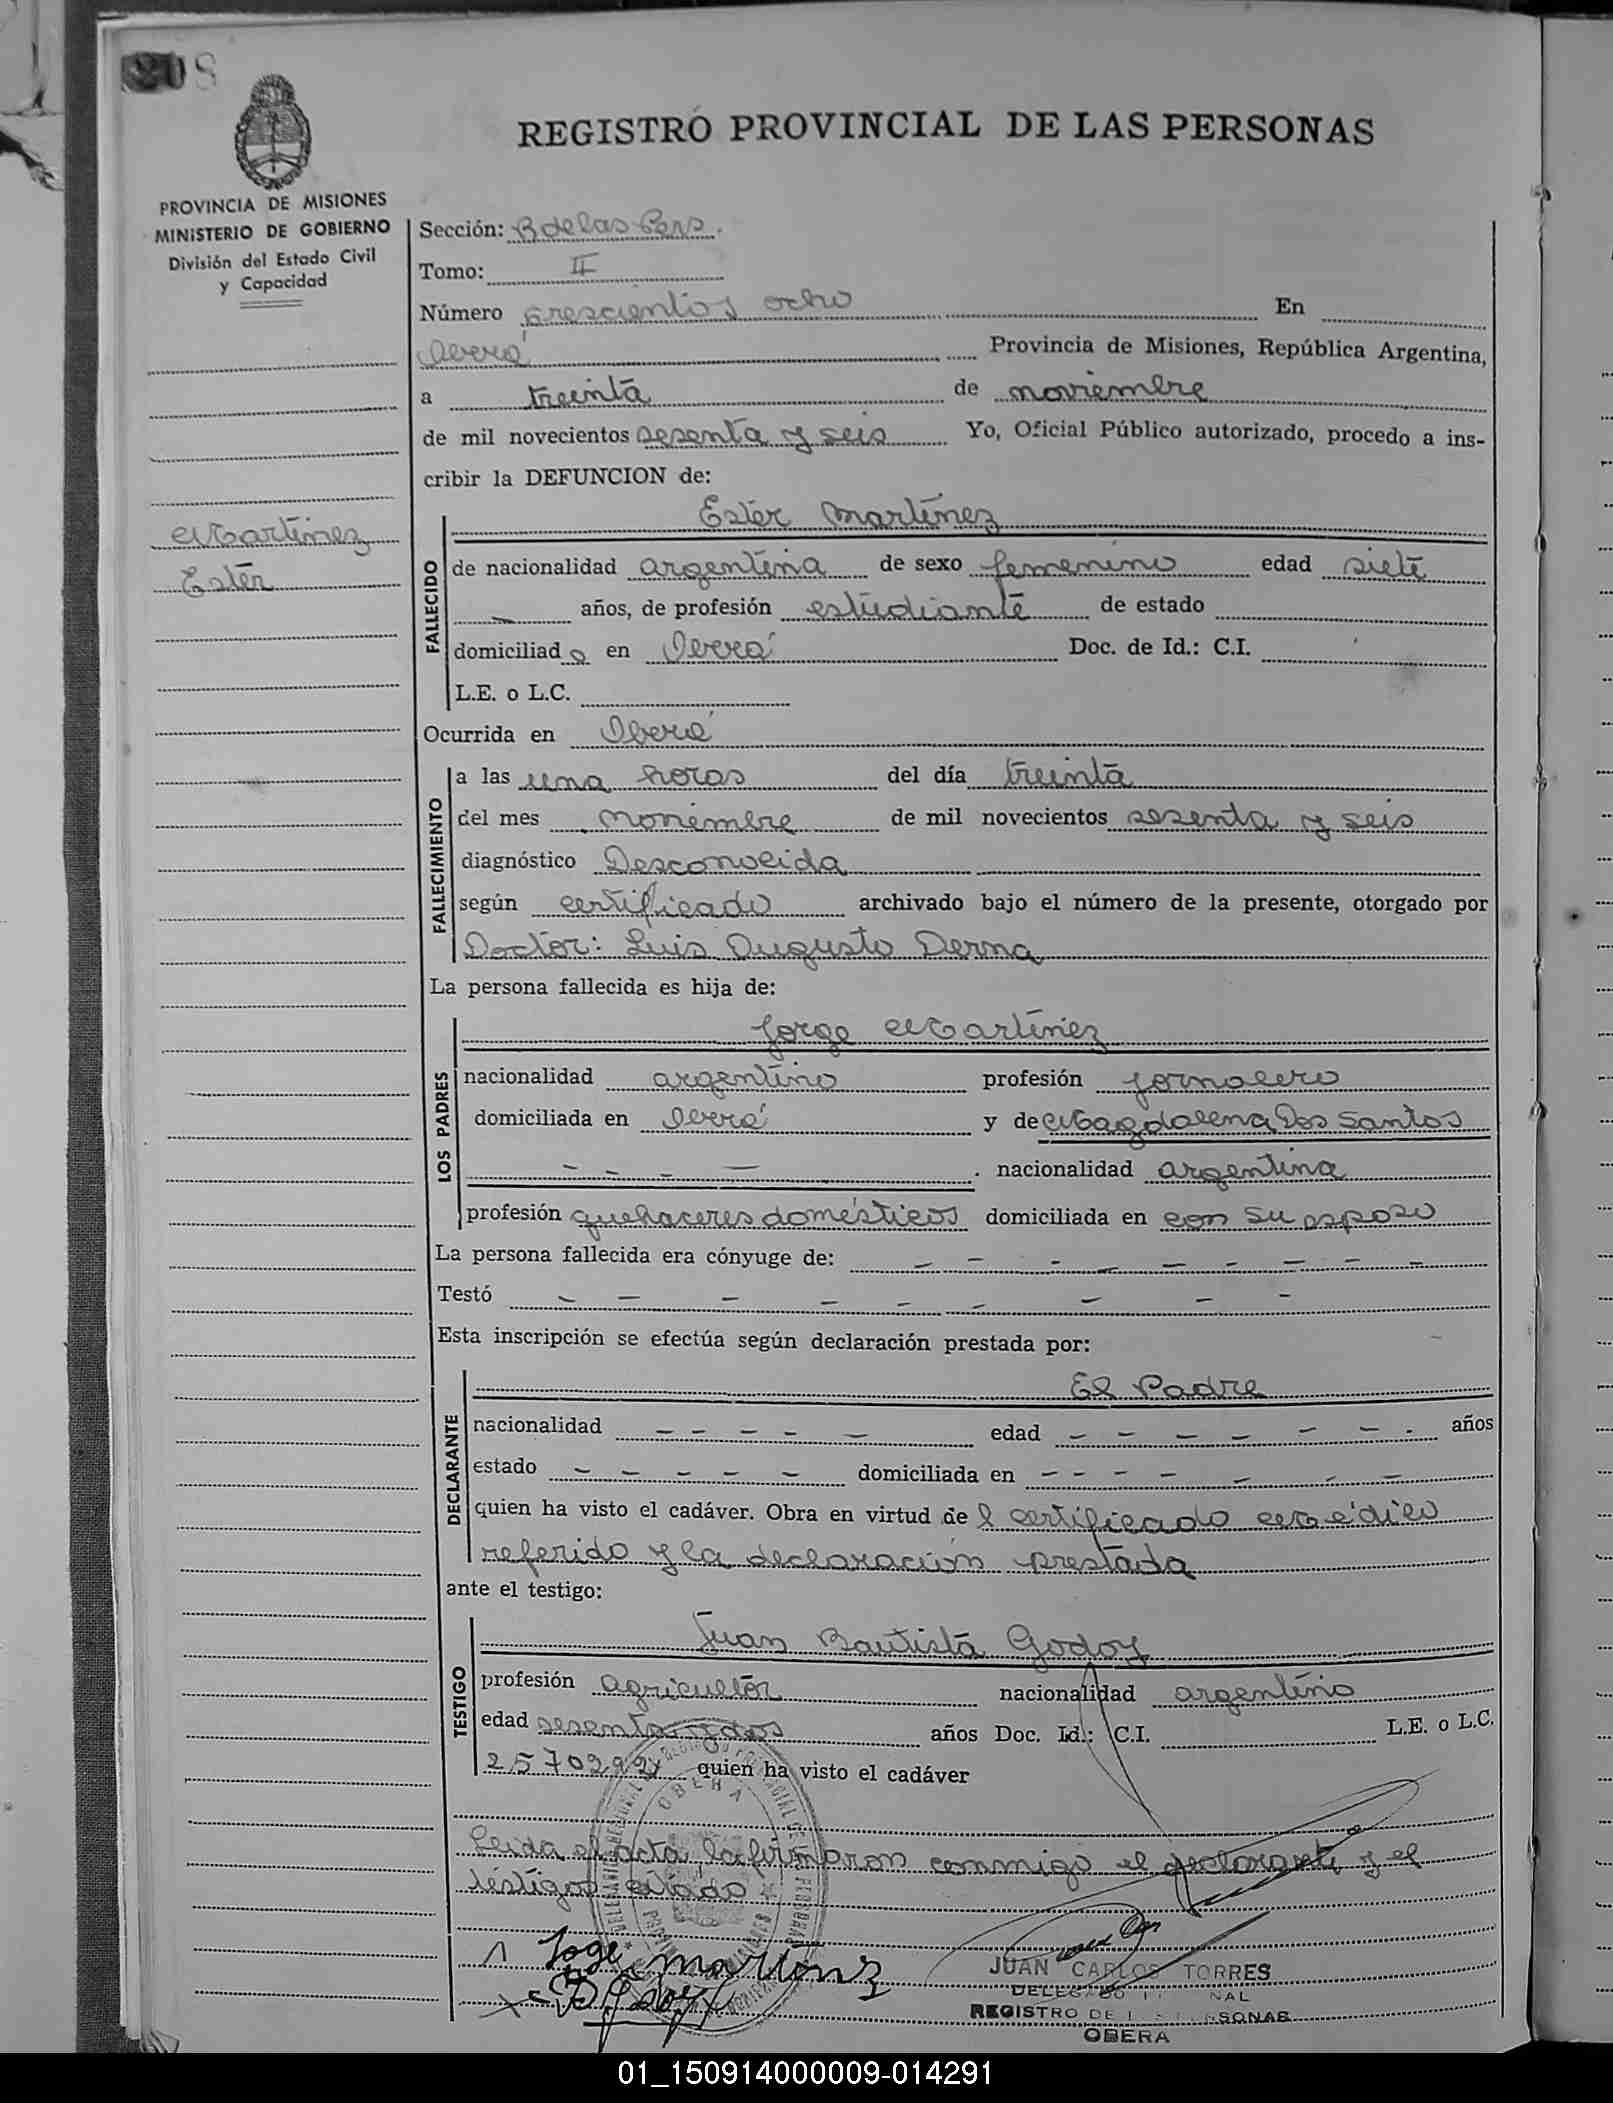 308
REGISTRO PROVINCIAL DE LAS PERSONAS
PROVINCIA DE MISIONES
MINISTERIO DE GOBIERNO
División del Estado Civil
y Capacidad
Martinez
Ester
Sección: R de las Pers.
Tomo: II
Número trescientos ocho En
Oberá Provincia de Misiones, República Argentina,
a treinta de noviembre
de mil novecientos sesenta y seis Yo, Oficial Público autorizado, procedo a ins-
cribir la DEFUNCION de:
Ester Martinez
FALLECIDO
de nacionalidad argentina de sexo femenino edad siete
— años, de profesión estudiante de estado
domiciliad o en Oberá Doc. de Id.: C.I.
L.E. o L.C.
Ocurrida en Oberá
FALLECIMIENTO
a las una horas del día treinta
del mes noviembre de mil novecientos sesenta y seis
diagnóstico Desconocida
según certificado archivado bajo el número de la presente, otorgado por
Doctor: Luis Augusto Derna
La persona fallecida es hija de:
LOS PADRES
Jorge Martinez
nacionalidad argentino profesión jornalero
domiciliada en Oberá y de Magdalena Dos Santos
- - - — nacionalidad argentina
profesión quehaceres domésticos domiciliada en con su esposo
La persona fallecida era cónyuge de: - - - - - - - - -
Testó - - - - - - - - -
Esta inscripción se efectúa según declaración prestada por:
DECLARANTE
El Padre
nacionalidad - - - - - edad - - - - - - - años
estado - - - - - domiciliada en - - - - - - -
quien ha visto el cadáver. Obra en virtud de l certificado médico
referido y la declaración prestada
ante el testigo:
TESTIGO
Juan Bautista Godoy
profesión agricultor nacionalidad argentino
edad sesenta y dos años Doc. Id.: C.I. L.E. o L.C.
quien ha visto el cadáver
Leida el acta, la firmaron conmigo el declarante y el
testigo citado
OBERA
Joge martinz
JUAN CARLOS TORRES
REGISTRO DE
OBERA
01_150914000009-014291